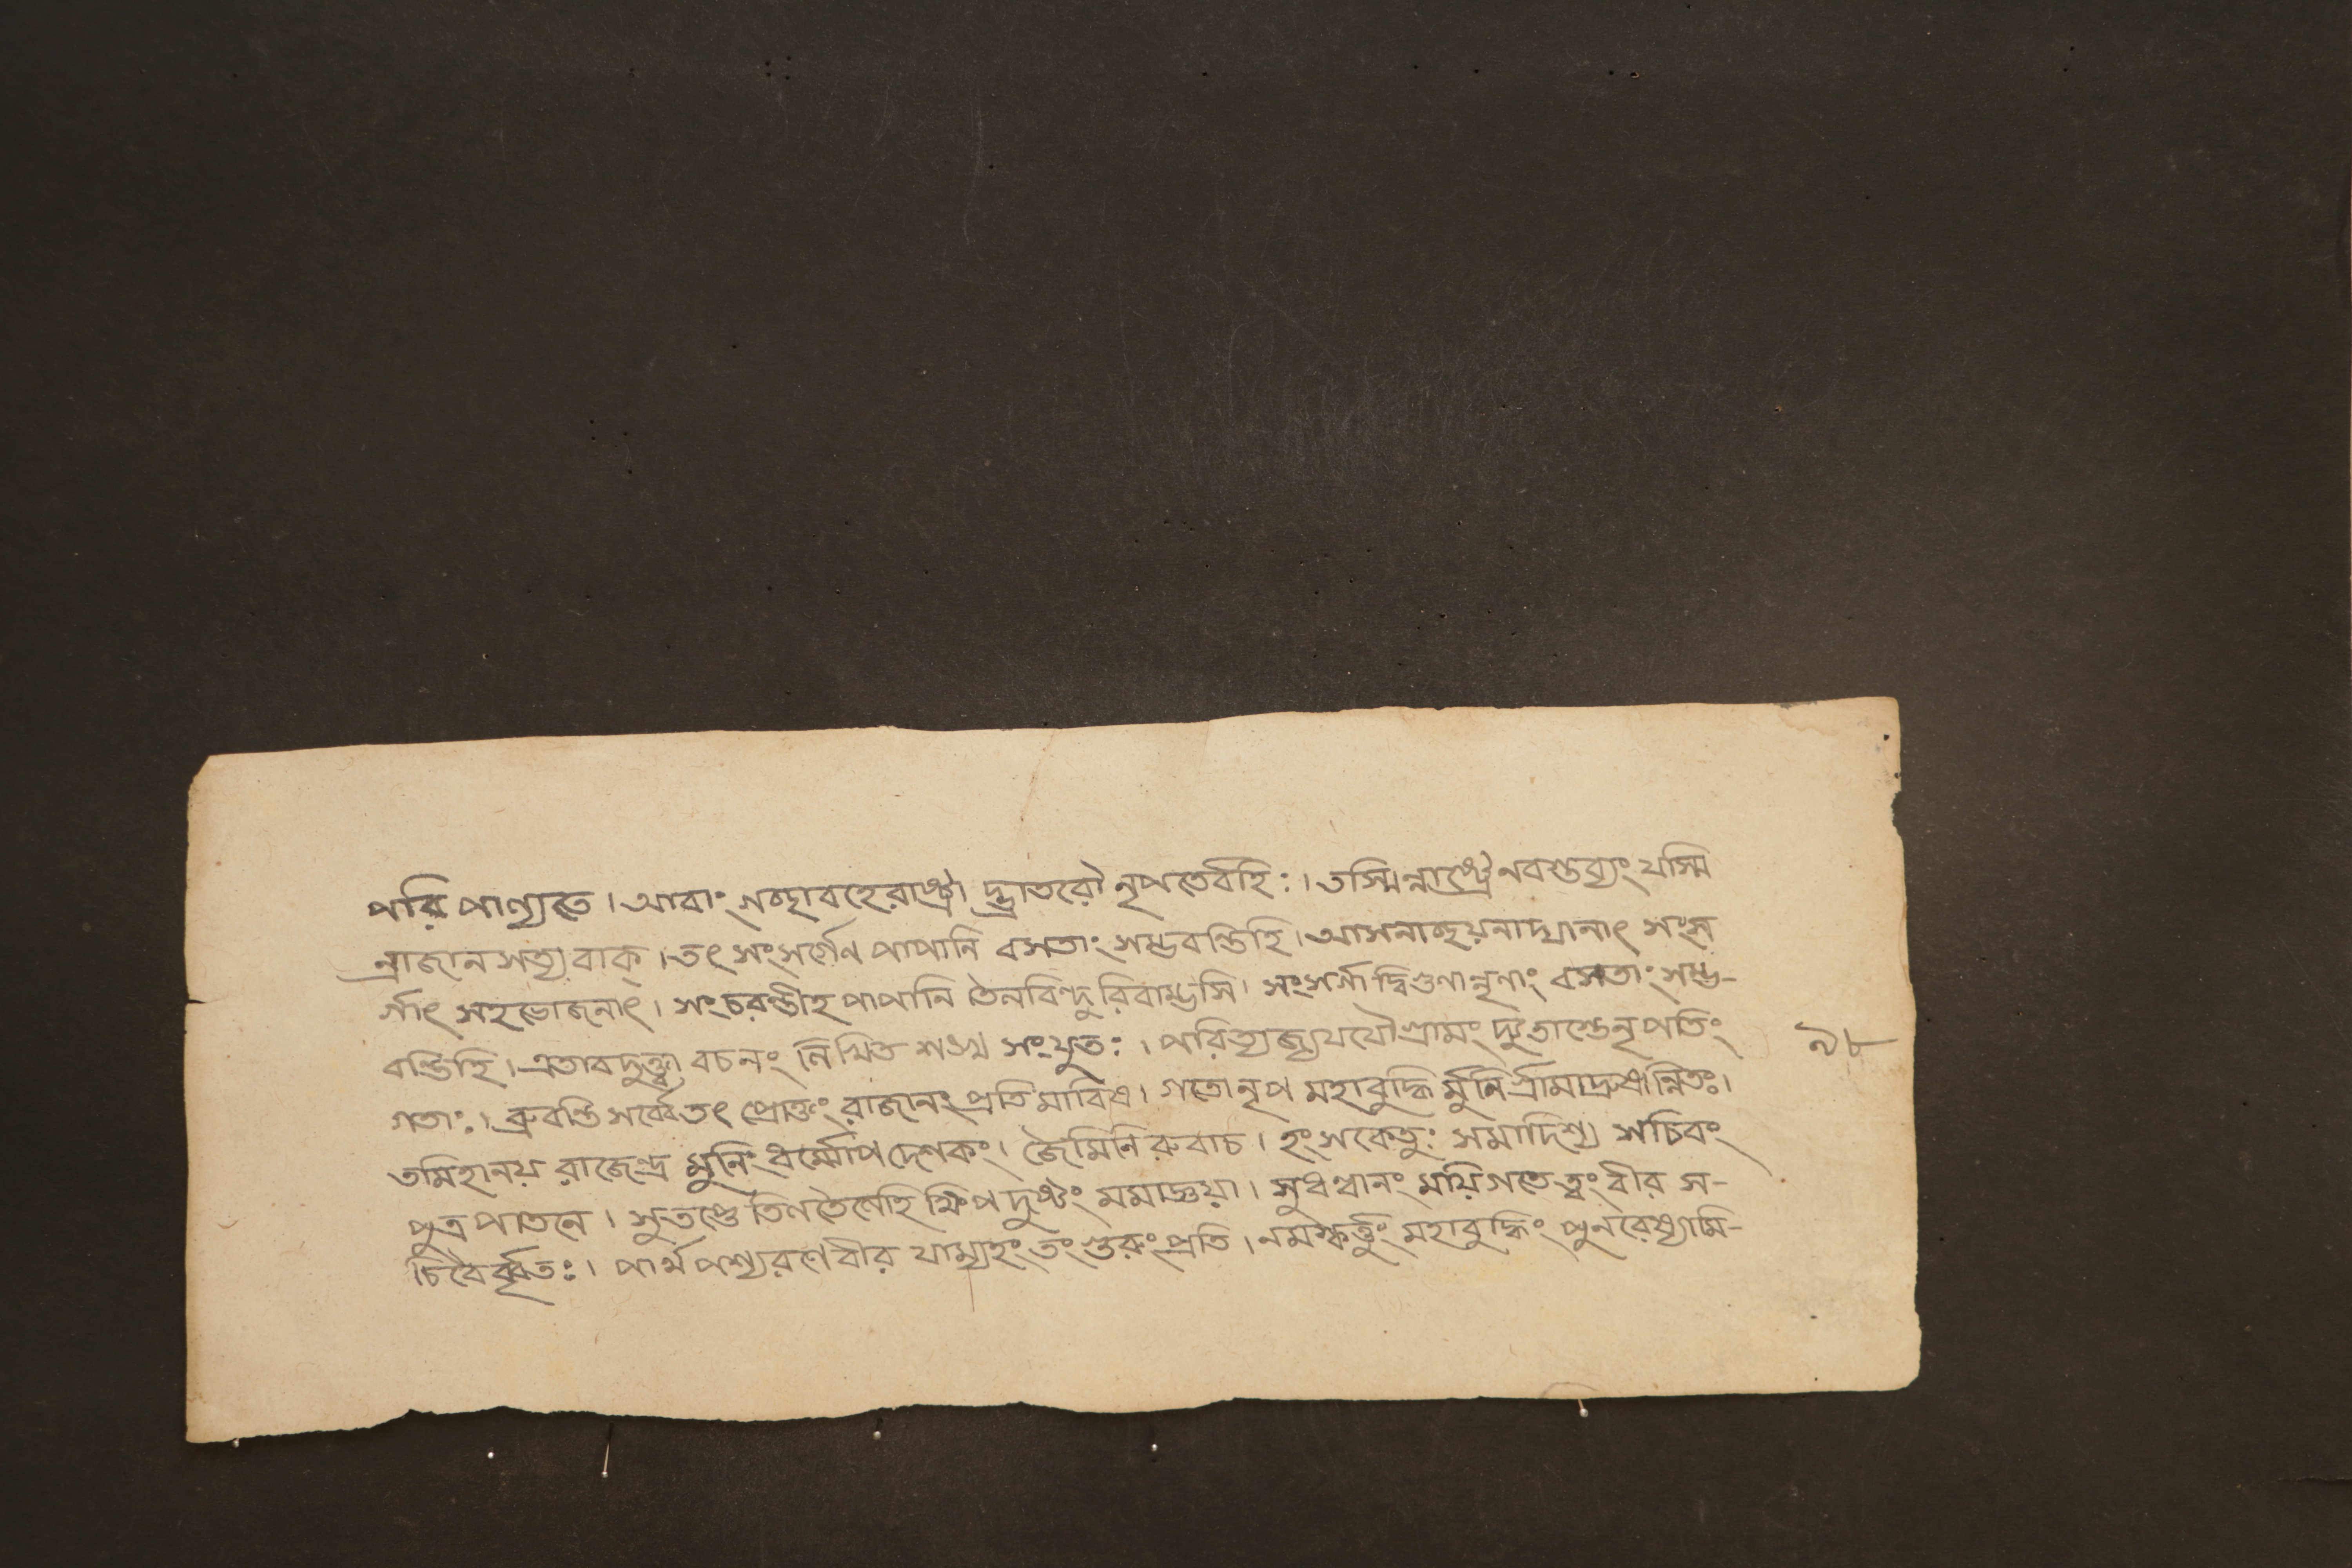 পরি পাণ্যুত । আবাং গচ্ছাবহে রাষ্ট্রা দ্ভ্রাতরৌ নৃপতের্বহিঃ । তস্মিন্নাষ্ট্রে ন বস্তব্যং যস্মি
ন্রাজা ন সত্য বাক্ । তৎ সংসর্গেণ পাপানি বসতাং সম্ভবন্তি হি । আসনাচ্ছয়নাদ্যানাৎ সংস
র্গাৎ সহভোজনাৎ । সংচরন্তীহ পাপানি তৈলবিন্দু রিবাম্ভসি । সংসর্গা দ্বিগুণান্নৃণাং বসতাং সম্ভ-
বন্তি হি । এতাবদুক্ত্বা বচনং লিখিত শঙ্খ সংযুতঃ । পরিত্যজ্য যযৌ গ্রামং দূতাস্তে নৃপতিং
গতাঃ । ব্রুবন্তি সর্ব্বে তৎ প্রোক্তং রাজানং প্রতি মারিষ । গতো নৃপ মহাবুদ্ধি র্মুনি র্গ্রামাদ্রুষান্বিতঃ ।
তমিহানয় রাজেন্দ্র মুনিং ধর্ম্মোপদেশকং । জৈমিনি রুবাচ । হংসকেতুঃ সমাদিশ্য সচিবং
পুত্র পাতনে । সুতপ্তে তিলতৈলেহি ক্ষিপ দুষ্টং মমাজ্ঞয়া । সুধন্বানং ময়ি গতে ত্বং বীর স-
চিবৈর্বৃতঃ । পার্থ পশ্য রণে বীর যাম্যহং তং গুরুং প্রতি । নমস্কর্ত্তুং মহাবুদ্ধিং পুনরেষ্যামি-
৯৮